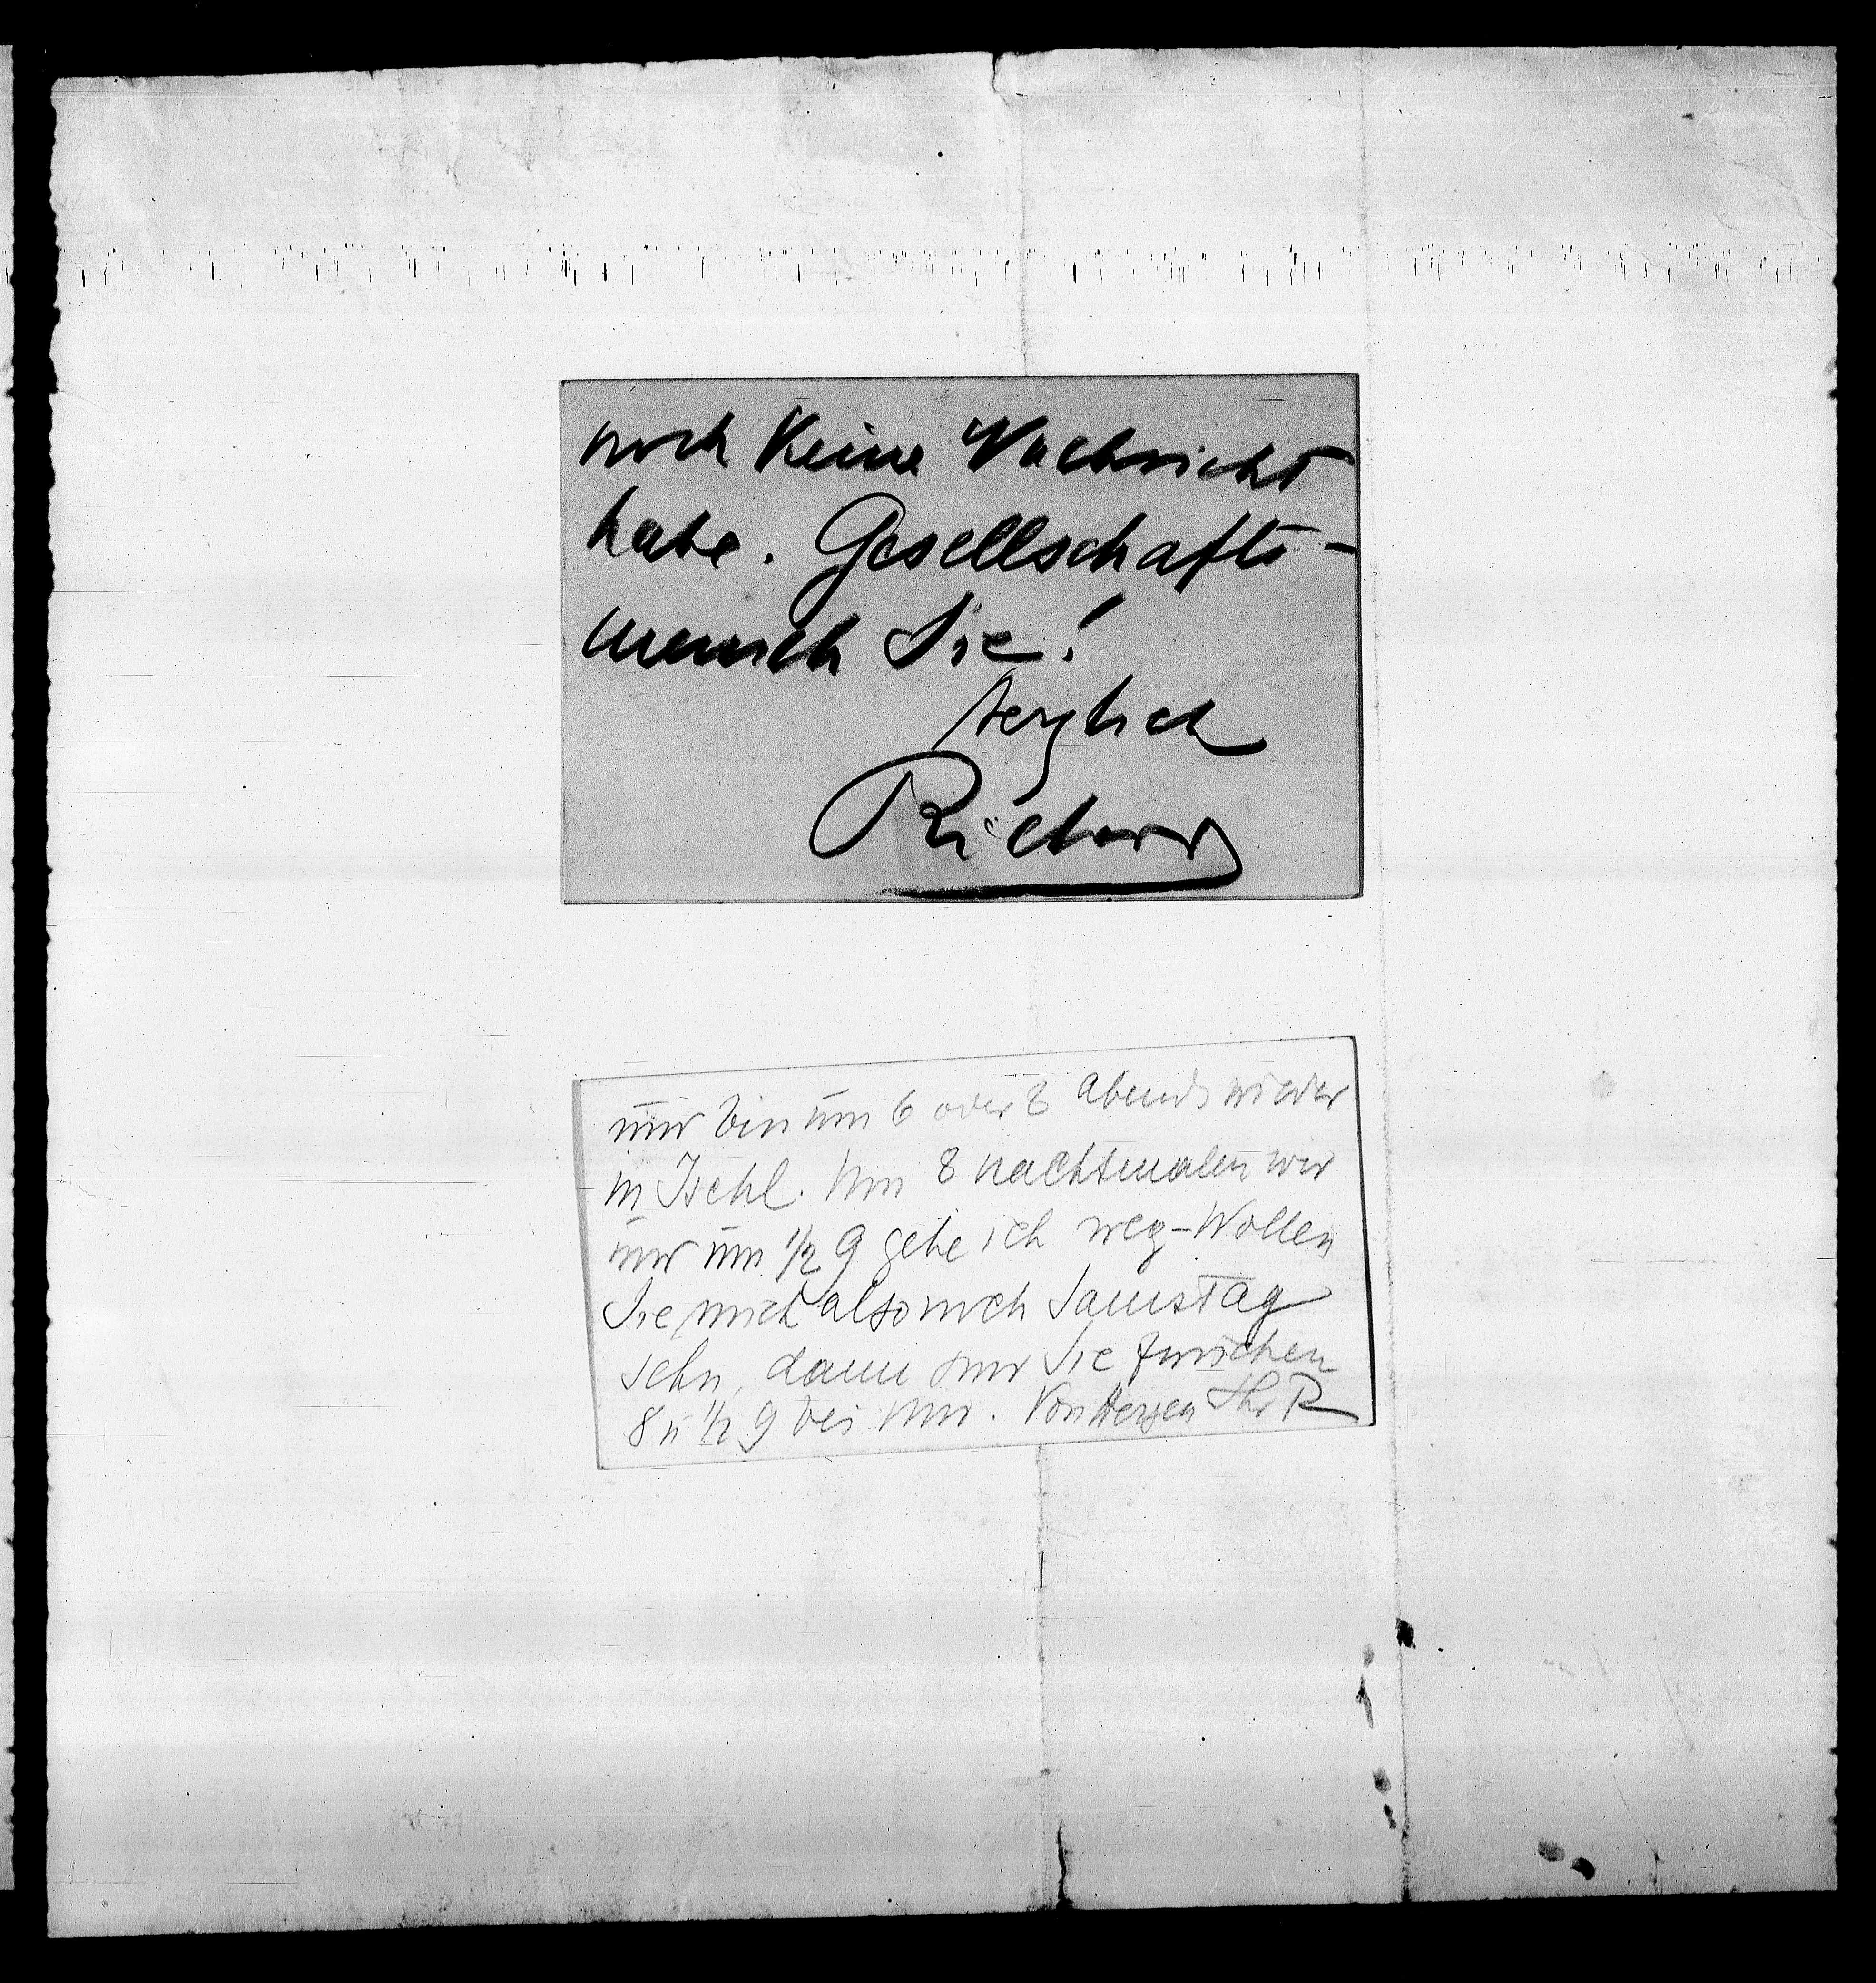 noch keine Nachricht
habe. Gesellschafts-
mensch Sie!
Herzlich
Richard
und bin um 6 oder 8 abends wieder
in Ischl. Um 8 nachtmalen wir
und um ½ 9 gehe ich weg – Wollen
Sie mich also noch Samstag
sehn, dann sind Sie zwischen
8 u ½ 9 bei mir. Von Herzen Ihr R